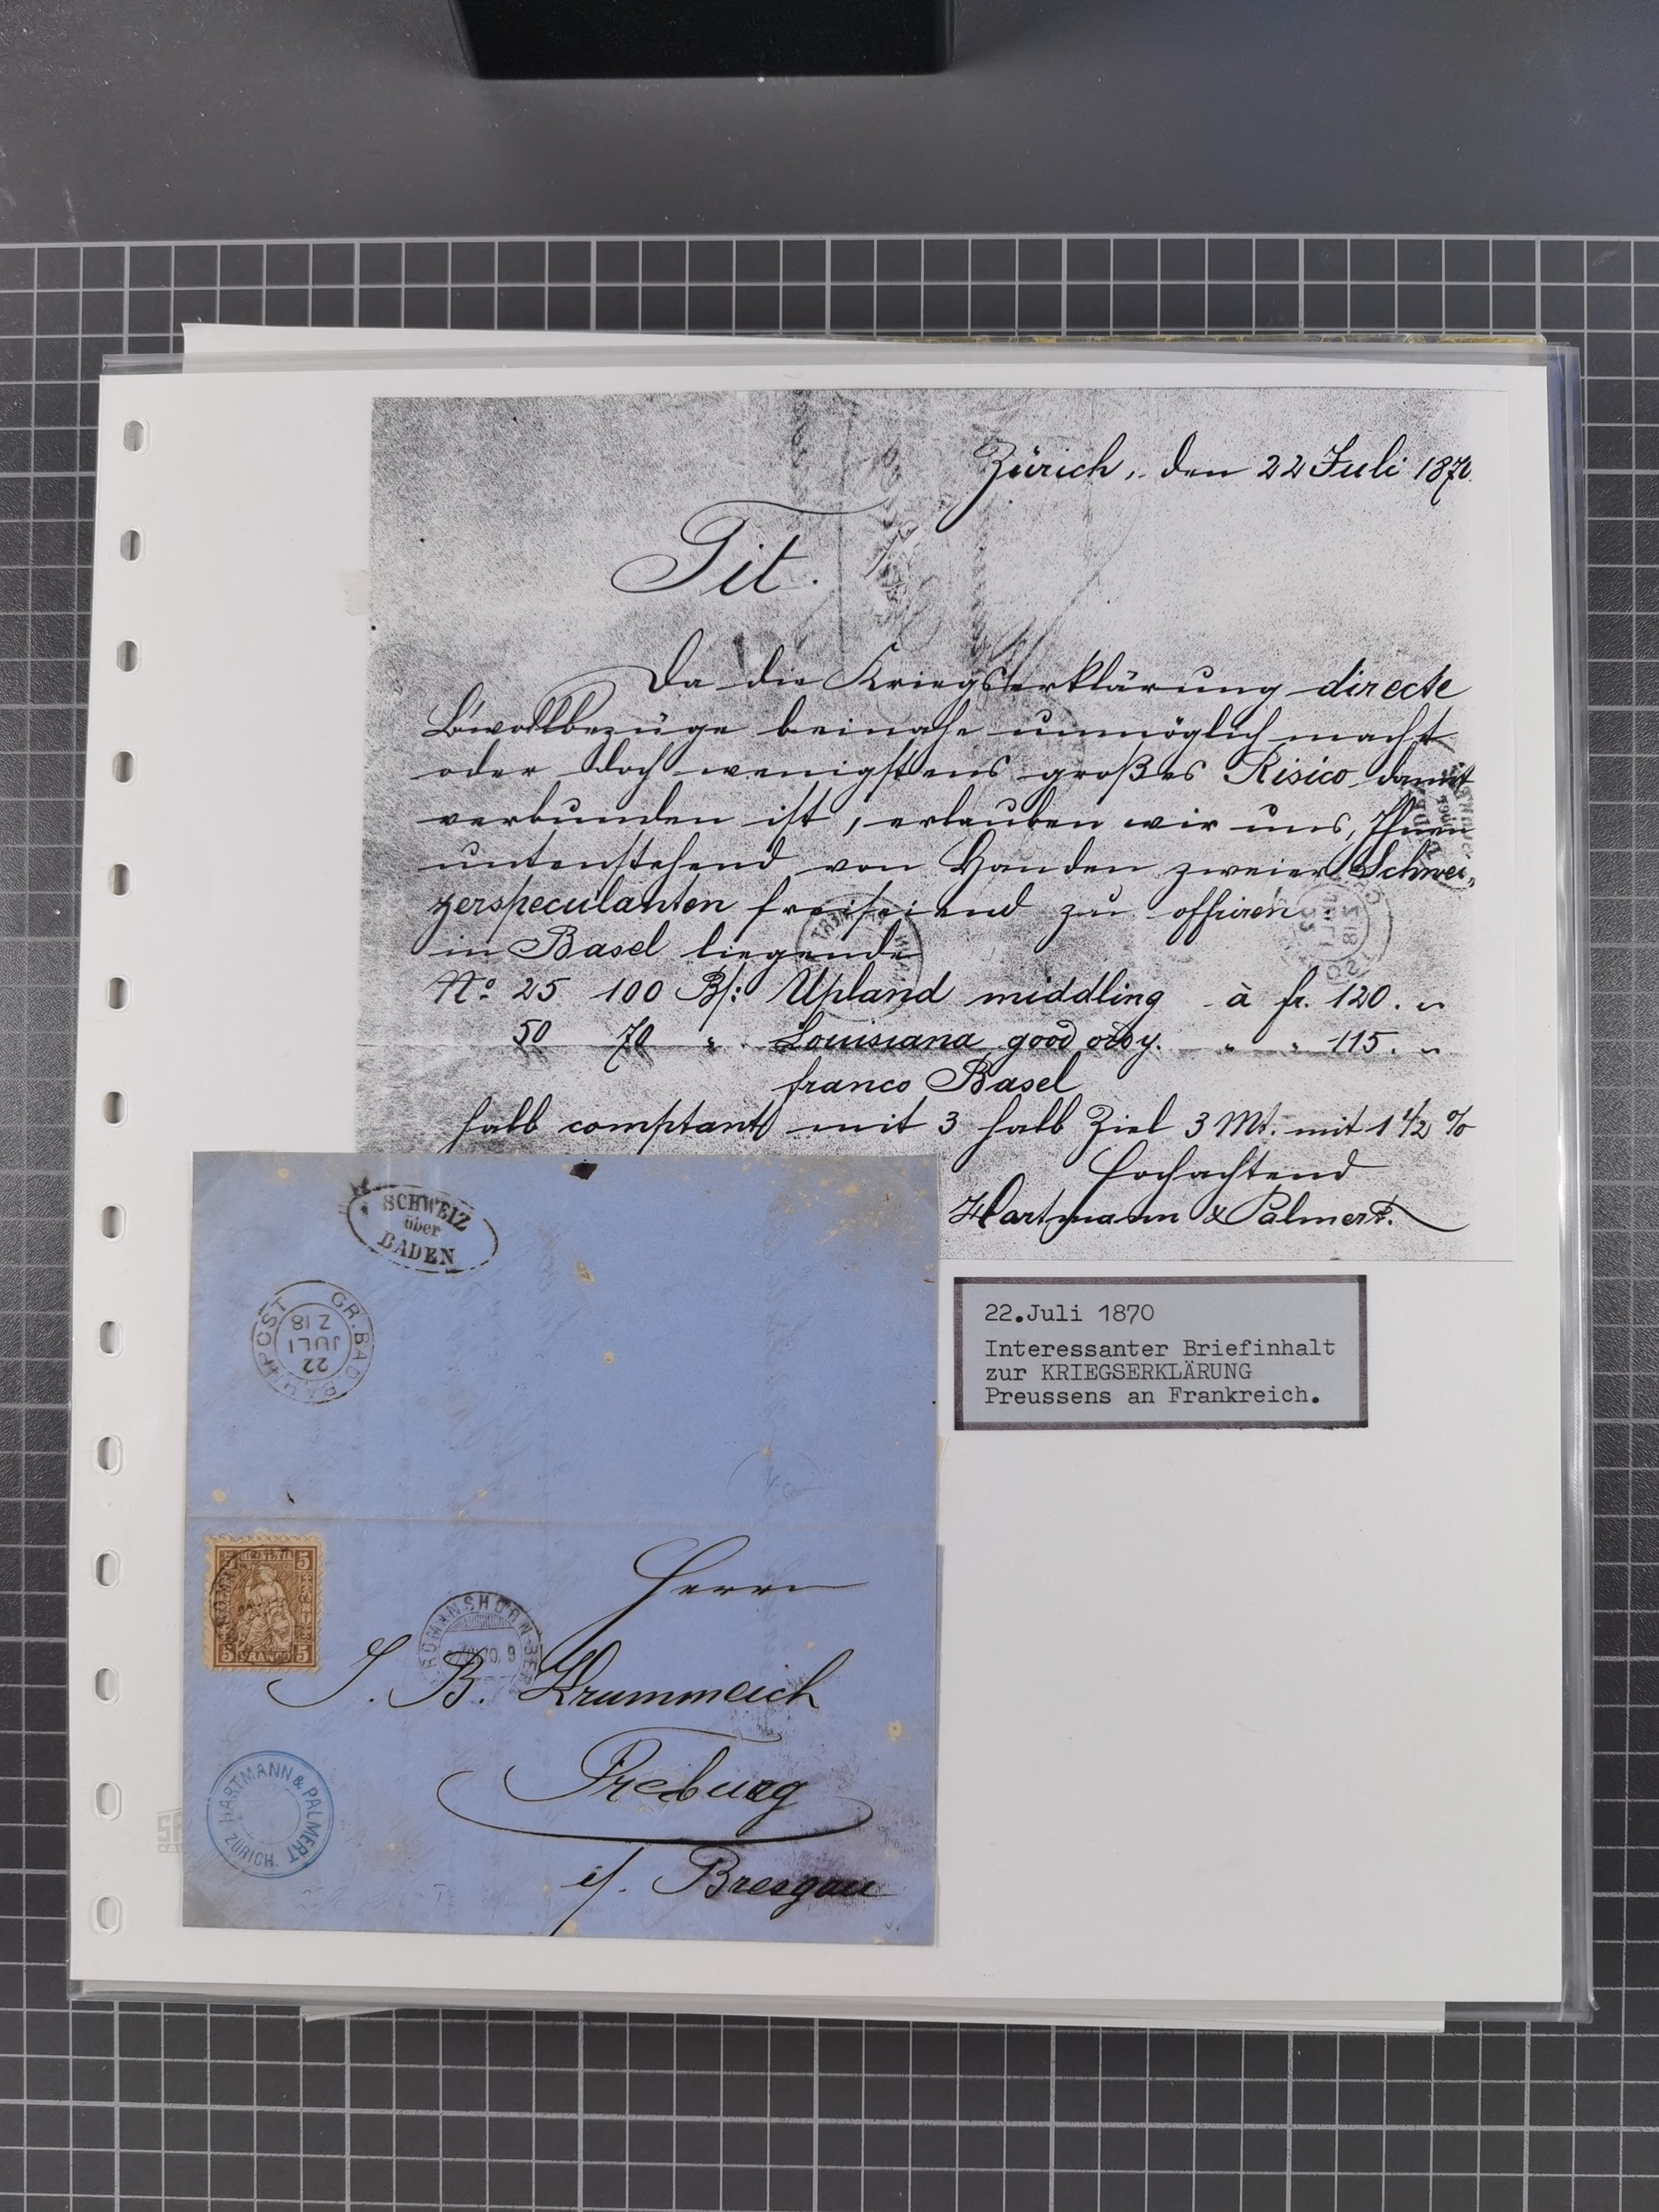 Zürich, den 22 Juli 1870.
Tit.
Da die Kriegserklärung directe
B'wollbezüge beinahe unmöglich macht
oder doch wenigstens großes Risico damit
verbunden ist, erlauben wir uns, Ihnen
untenstehend von Handen zweier Schwei-
zerspeculanten freiseiend zu offriren
in Basel liegende
No. 25 100 B/: Upland middling à fr. 120. "
50 70 " Louisiana good ordy. " " 115. "
franco Basel
halb comptant mit 3 halb Ziel 3 Mt. mit 1 1/2 %
Hochachtend
Hartmann & Palmert.
SCHWEIZ
über
BADEN
GR. BAD. BAHNPOST
22
JULI
Z 18
22.Juli 1870
Interessanter Briefinhalt
zur KRIEGSERKLÄRUNG
Preussens an Frankreich.
5 HELVETIA 5
5 FRANCO 5
ROMANSHORN
70. 9
Herrn
J. B. Krummeich
Freburg
i/. Bresgau
HARTMANN & PALMERT
ZÜRICH.